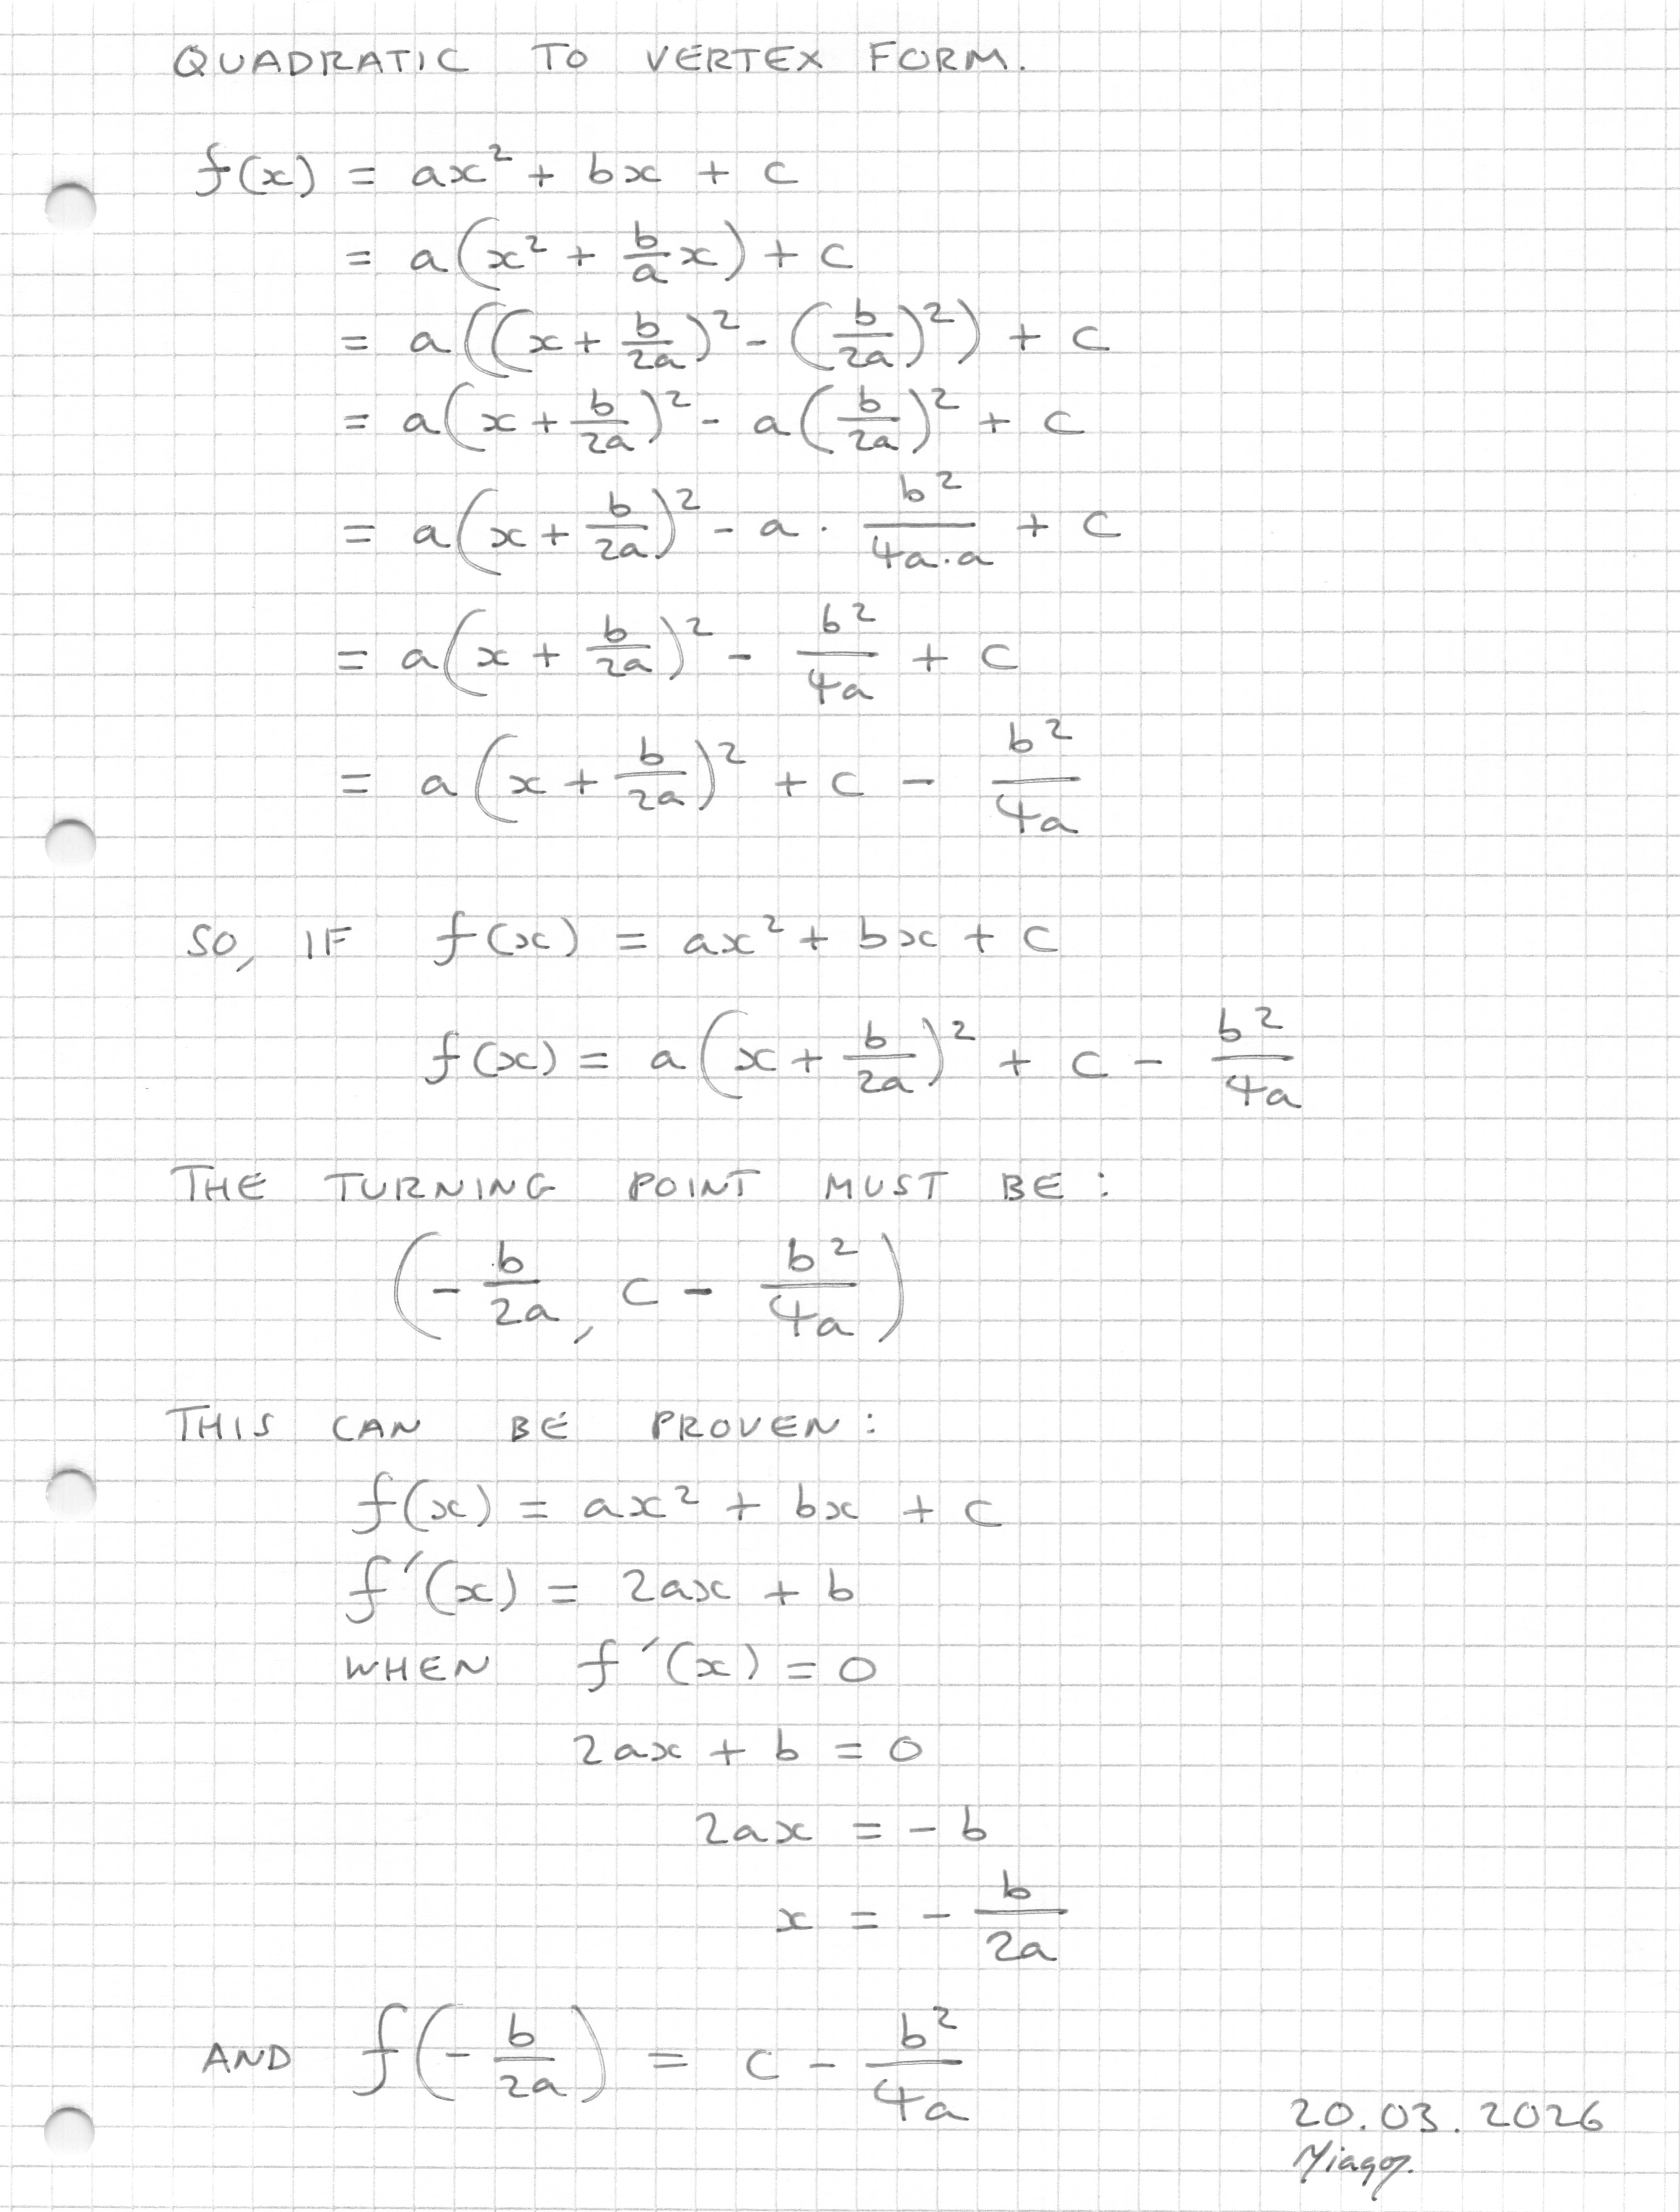 QUADRATIC TO VERTEX FORM.
f(x) = ax² + bx + c
= a(x² + b/a x) + c
= a((x + b/2a)² - (b/2a)²) + c
= a(x + b/2a)² - a(b/2a)² + c
= a(x + b/2a)² - a · b²/4a.a + c
= a(x + b/2a)² - b²/4a + c
= a(x + b/2a)² + c - b²/4a
SO, IF f(x) = ax² + bx + c
f(x) = a(x + b/2a)² + c - b²/4a
THE TURNING POINT MUST BE:
(- b/2a, c - b²/4a)
THIS CAN BE PROVEN:
f(x) = ax² + bx + c
f′(x) = 2ax + b
WHEN f′(x) = 0
2ax + b = 0
2ax = - b
x = - b/2a
AND f(- b/2a) = c - b²/4a
20.03.2026